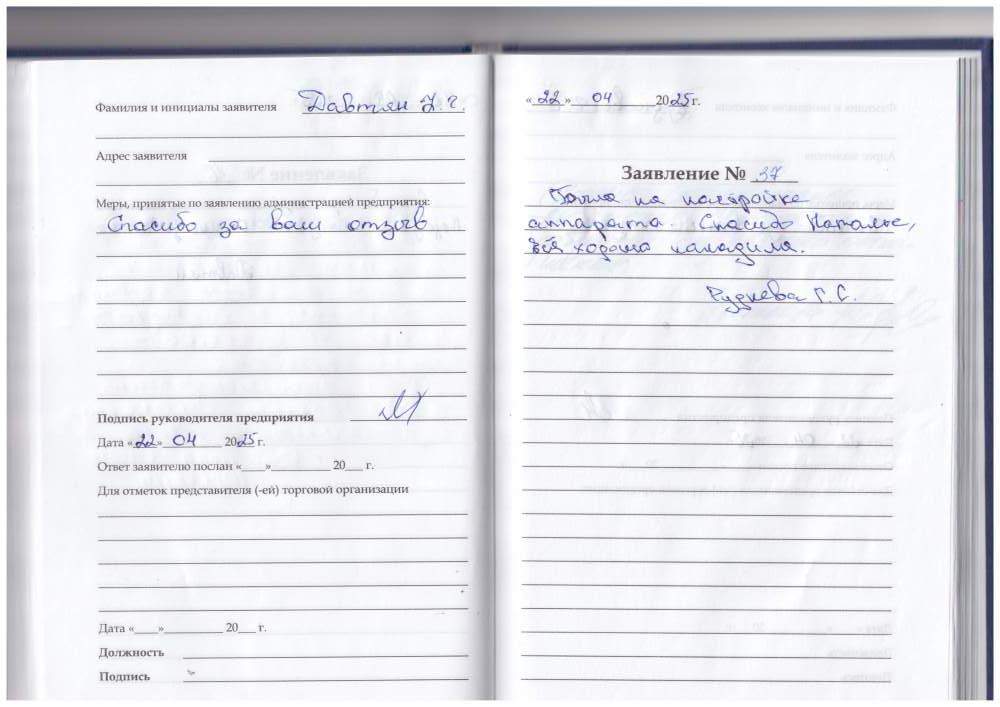 Фамилия и инициалы заявителя Давтян
Адрес заявителя
Меры, принятые по заявлению администрацией предприятия:
Спасибо за ваш отзыв
Подпись руководителя предприятия
Дата «22» 04 2025 г.
Ответ заявителю послан «___»__________ 20___ г.
Для отметок представителя (-ей) торговой организации
Дата «____»__________ 20___ г.
Должность
Подпись
«22» 04 2025 г.
Заявление № 37
Была на настройке
аппарата. Спасибо Наталье,
всё хорошо наладила.
Руднева Г. С.